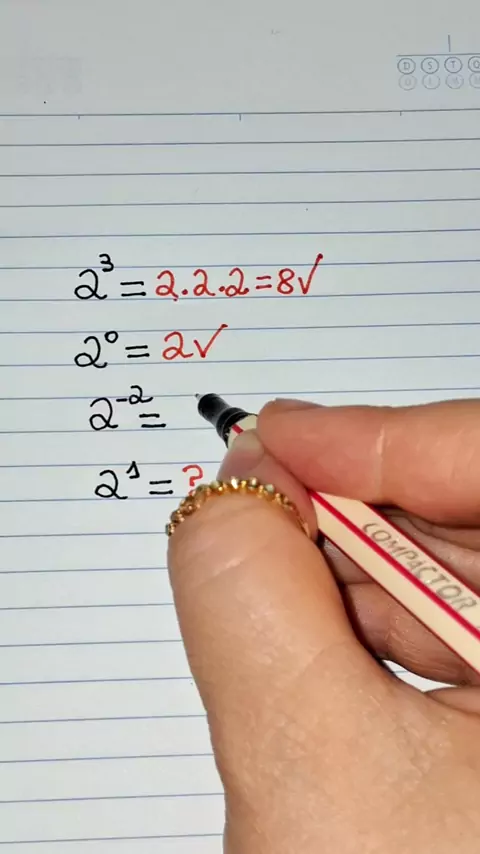 D S T Q
2³ = 2.2.2 = 8✓
2⁰ = 2✓
2⁻² =
2¹ = ?
COMPACTOR